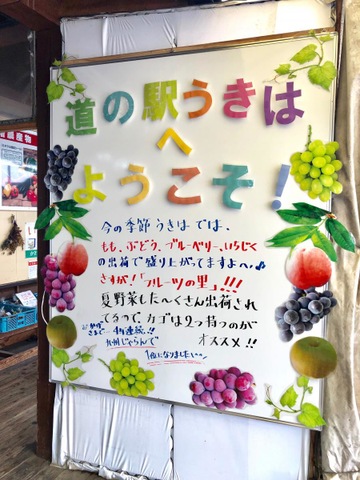 道の駅うきは
へ
ようこそ!
今の季節うきはでは、
もも、ぶどう、ブルーベリー、いちじく
の出荷で盛り上がってますよへ♪
さすが!「フルーツの里」!!!
夏野菜もた〜くさん出荷され
てるって、カゴは2つ持つのが
オススメ!!
おかげさまで 4年連続!!
九州じゃらんで
1位になりました